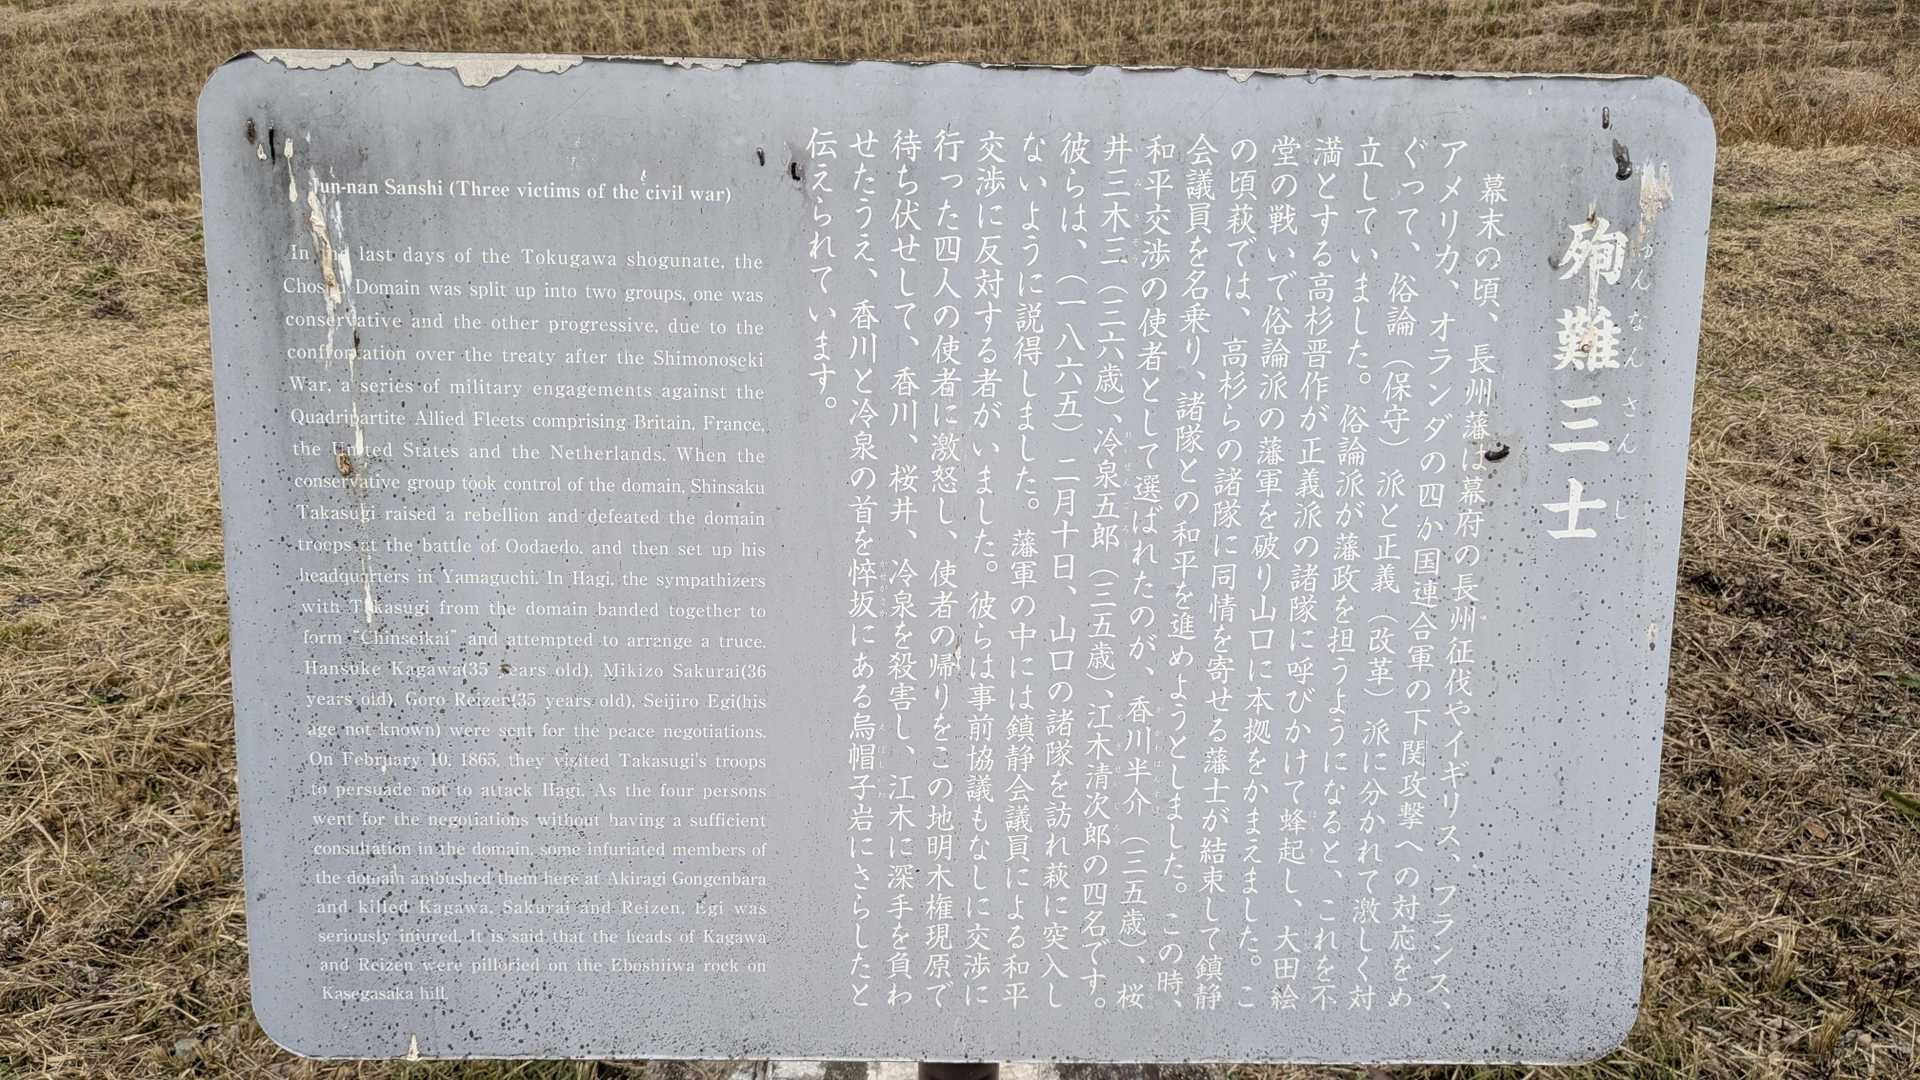 殉難三士
じゅんなんさんし
幕末の頃、長州藩は幕府の長州征伐やイギリス、フランス、
アメリカ、オランダの四か国連合軍の下関攻撃への対応をめ
ぐって、俗論（保守）派と正義（改革）派に分かれて激しく対
立していました。俗論派が藩政を担うようになると、これを不
満とする高杉晋作が正義派の諸隊に呼びかけて蜂起し、大田絵
堂の戦いで俗論派の藩軍を破り山口に本拠をかまえました。こ
の頃萩では、高杉らの諸隊に同情を寄せる藩士が結束して鎮静
会議員を名乗り、諸隊との和平を進めようとしました。この時、
和平交渉の使者として選ばれたのが、香川半介（三五歳）、桜
井三木三（三六歳）、冷泉五郎（三五歳）、江木清次郎の四名です。
彼らは、（一八六五）二月十日、山口の諸隊を訪れ萩に突入し
ないように説得しました。藩軍の中には鎮静会議員による和平
交渉に反対する者がいました。彼らは事前協議もなしに交渉に
行った四人の使者に激怒し、使者の帰りをこの地明木権現原で
待ち伏せして、香川、桜井、冷泉を殺害し、江木に深手を負わ
せたうえ、香川と冷泉の首を悴坂にある烏帽子岩にさらしたと
伝えられています。
Jun-nan Sanshi (Three victims of the civil war)
In the last days of the Tokugawa shogunate, the
Choshu Domain was split up into two groups, one was
conservative and the other progressive, due to the
confrontation over the treaty after the Shimonoseki
War, a series of military engagements against the
Quadripartite Allied Fleets comprising Britain, France,
the United States and the Netherlands. When the
conservative group took control of the domain, Shinsaku
Takasugi raised a rebellion and defeated the domain
troops at the battle of Oodaedo, and then set up his
headquarters in Yamaguchi. In Hagi, the sympathizers
with Takasugi from the domain banded together to
form "Chinseikai" and attempted to arrange a truce.
Hansuke Kagawa(35 years old), Mikizo Sakurai(36
years old), Goro Reizen(35 years old), Seijiro Egi(his
age not known) were sent for the peace negotiations.
On February 10, 1865, they visited Takasugi's troops
to persuade not to attack Hagi. As the four persons
went for the negotiations without having a sufficient
consultation in the domain, some infuriated members of
the domain ambushed them here at Akiragi Gongenbara
and killed Kagawa, Sakurai and Reizen, Egi was
seriously injured. It is said that the heads of Kagawa
and Reizen were pilloried on the Eboshiiwa rock on
Kasegasaka hill.